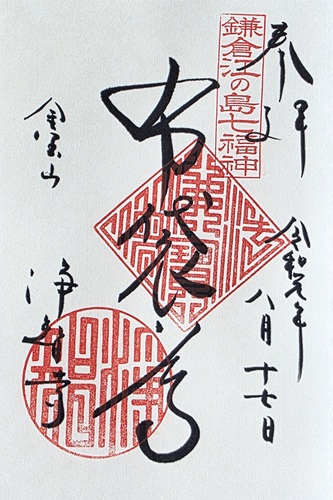 奉拝
鎌倉江の島七福神
令和元年
八月十七日
布袋尊
金宝山
浄智寺